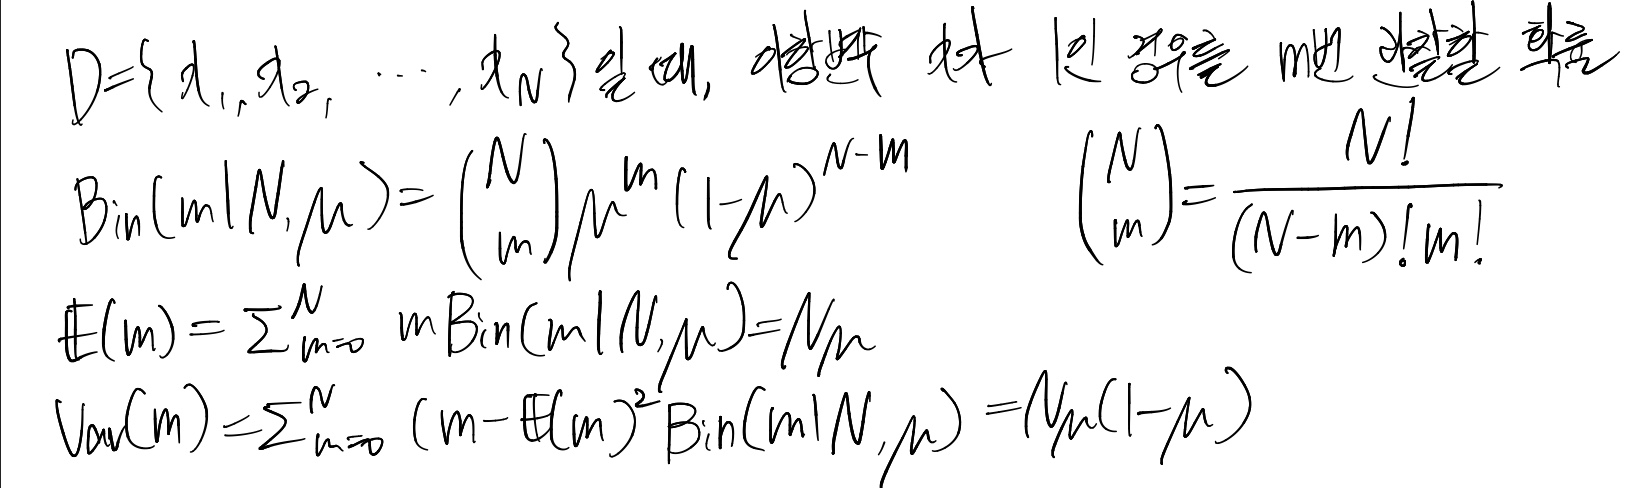 D={x₁, x₂, ⋯, x_N}일 때, 이항변수 x가 1인 경우를 m번 관찰할 확률
Bin(m|N,μ)=(N m)μ^m(1-μ)^{N-m} (N m)=N!/((N-m)!m!)
𝔼(m)=Σ_{m=0}^N mBin(m|N,μ)=Nμ
Var(m)=Σ_{m=0}^N (m-𝔼(m)²Bin(m|N,μ)=Nμ(1-μ)